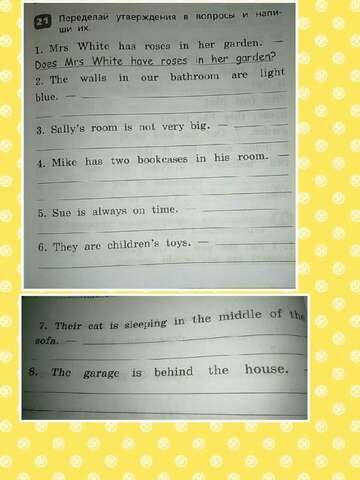 21 Переделай утверждения в вопросы и напи-
ши их.
1. Mrs White has roses in her garden. —
Does Mrs White have roses in her garden?
2. The walls in our bathroom are light
blue. —
3. Sally's room is not very big. —
4. Mike has two bookcases in his room. —
5. Sue is always on time. —
6. They are children's toys. —
7. Their cat is sleeping in the middle of the
sofa. —
8. The garage is behind the house. —